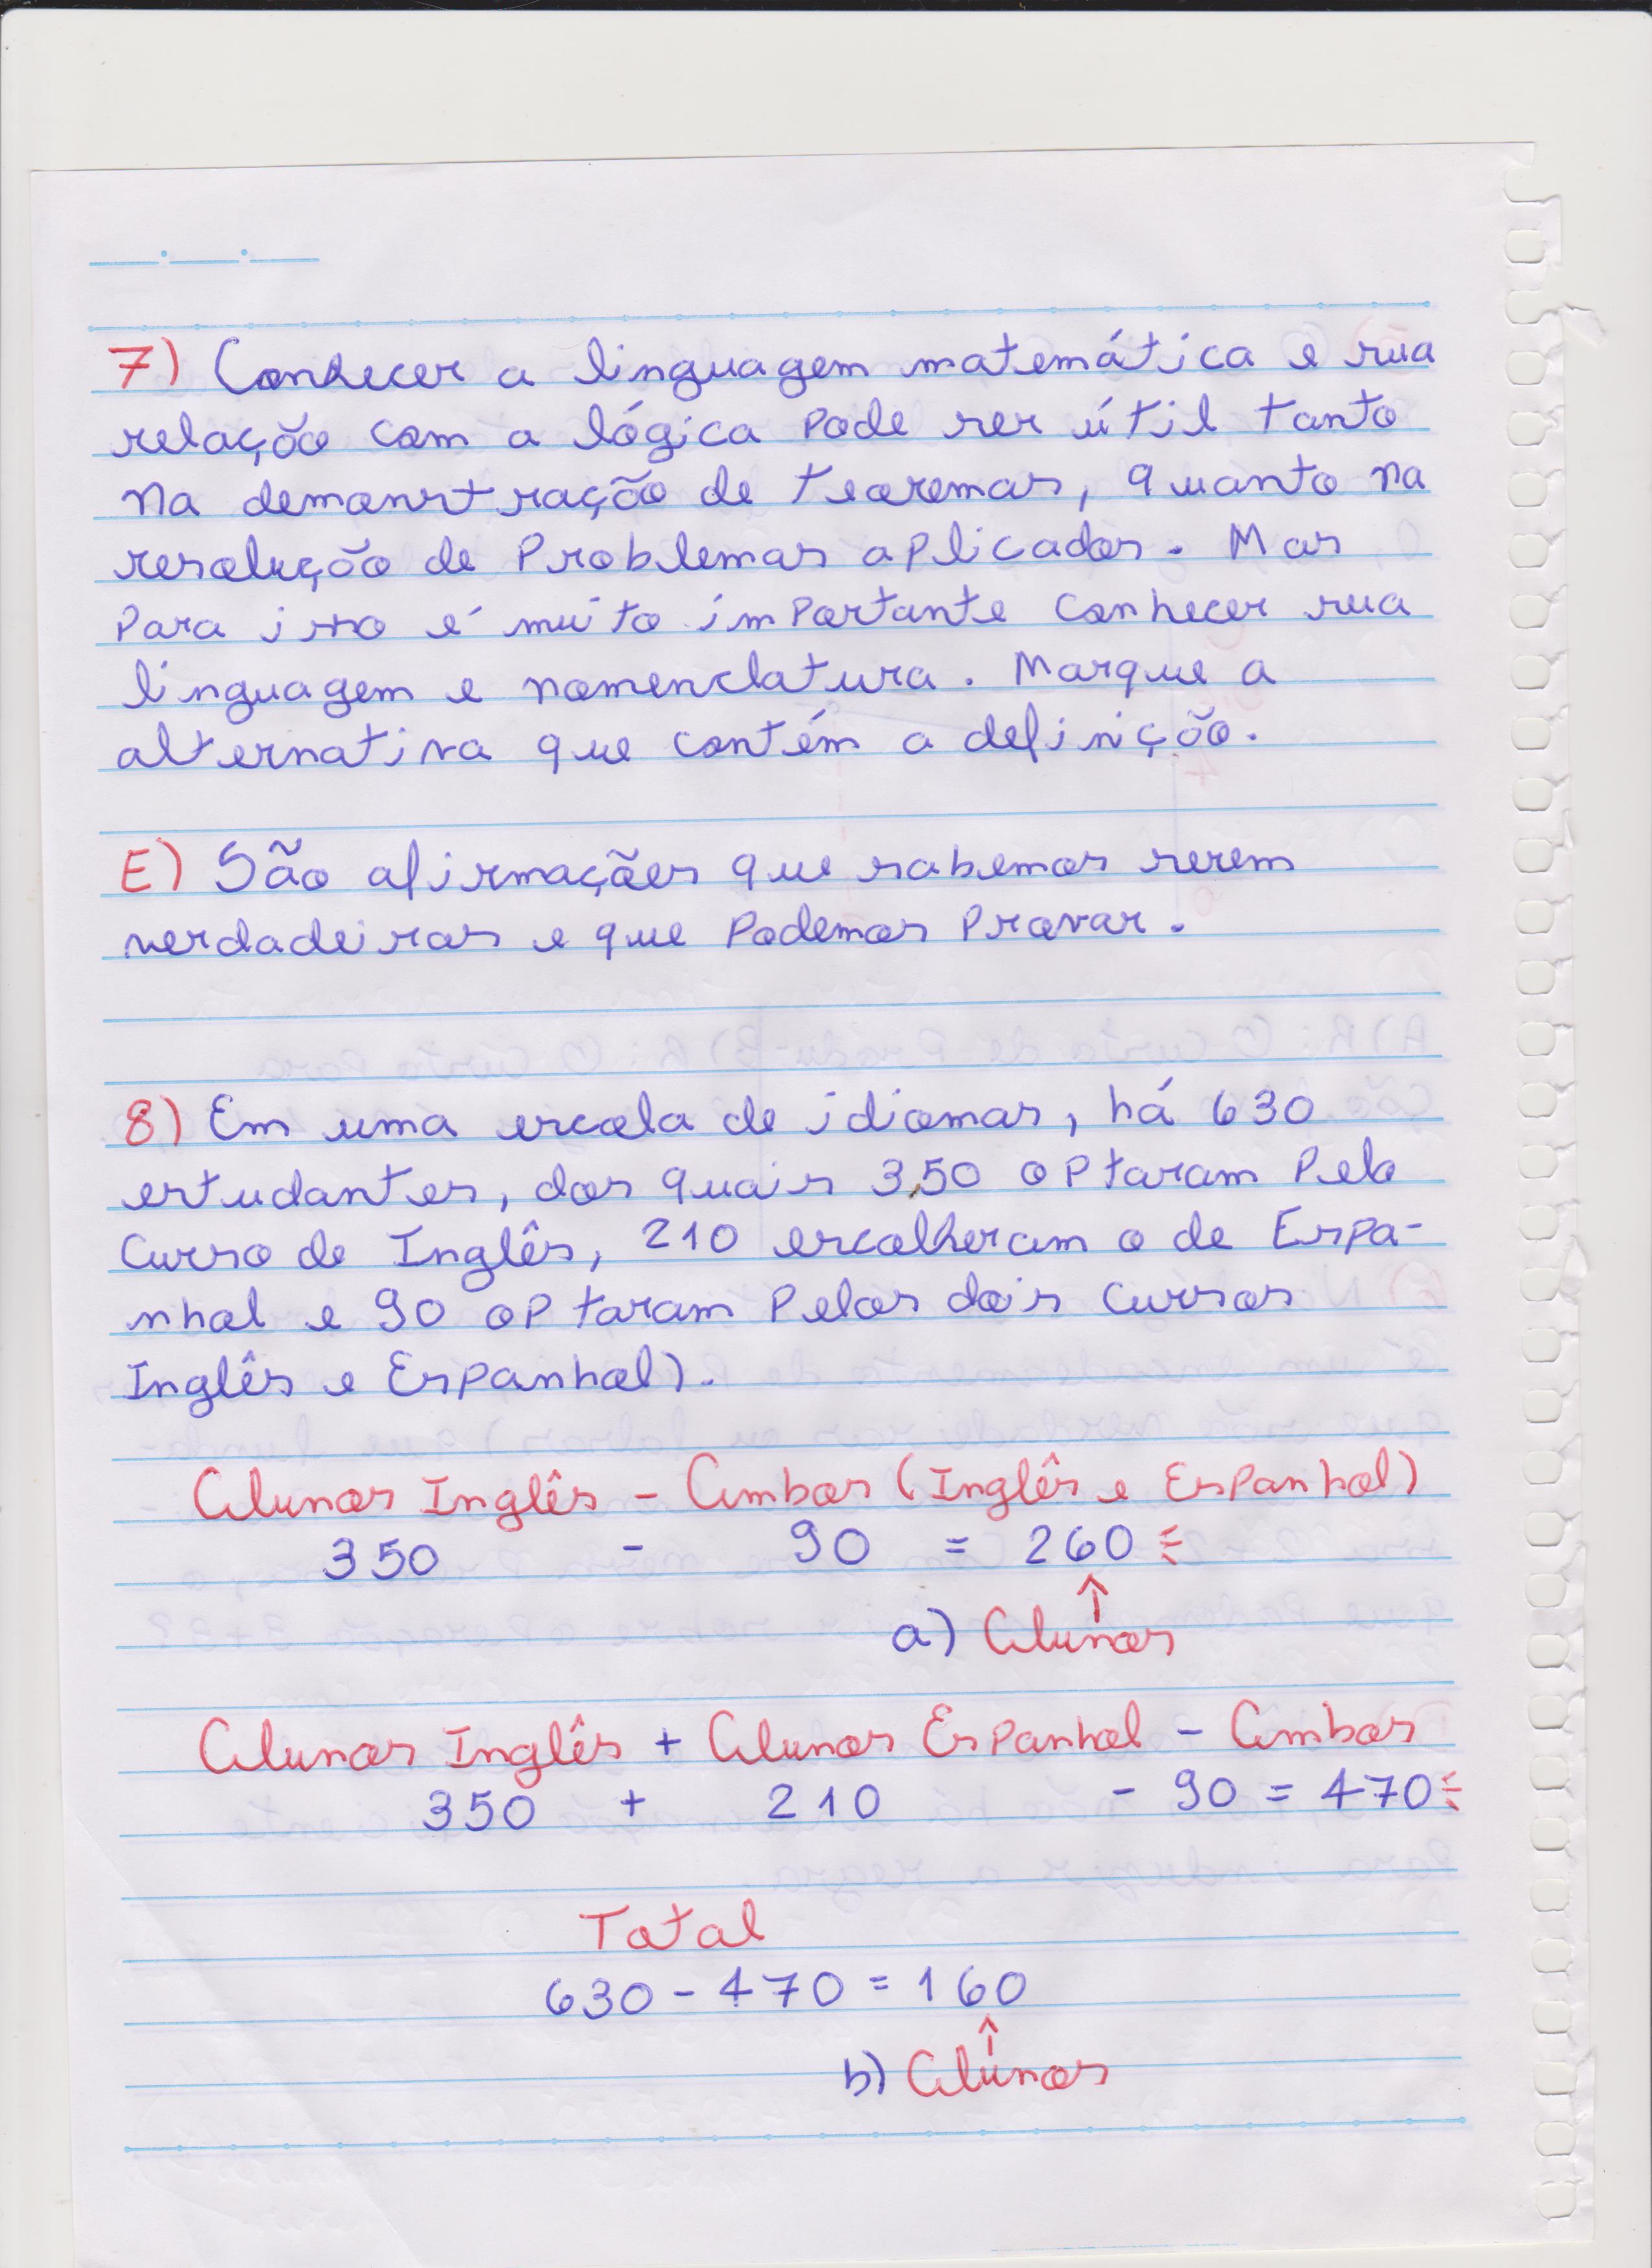 7) Conhecer a linguagem matemática e sua
relação com a lógica pode ser útil tanto
na demonstração de teoremas, quanto na
resolução de problemas aplicados. Mas
para isso é muito importante conhecer sua
linguagem e nomenclatura. Marque a
alternativa que contém a definição.
E) São afirmações que sabemos serem
verdadeiras e que podemos provar.
8) Em uma escola de idiomas, há 630
estudantes, dos quais 350 optaram pelo
curso de Inglês, 210 escolheram o de Espa-
nhol e 90 optaram pelos dois cursos
Inglês e Espanhol).
Alunos Inglês - Ambos (Inglês e Espanhol)
350 - 90 = 260
a) Alunos
Alunos Inglês + Alunos Espanhol - Ambos
350 + 210 - 90 = 470
Total
630 - 470 = 160
b) Alunos